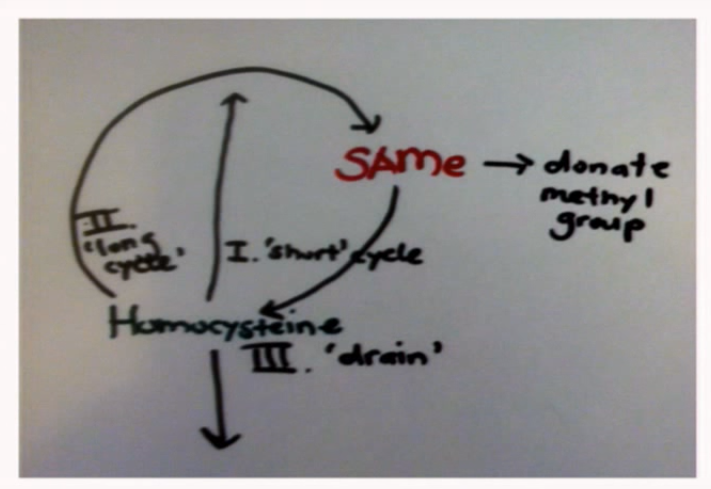 SAMe → donate
methyl
group
II.
'long
cycle'
I. 'short' cycle
Homocysteine
III. 'drain'